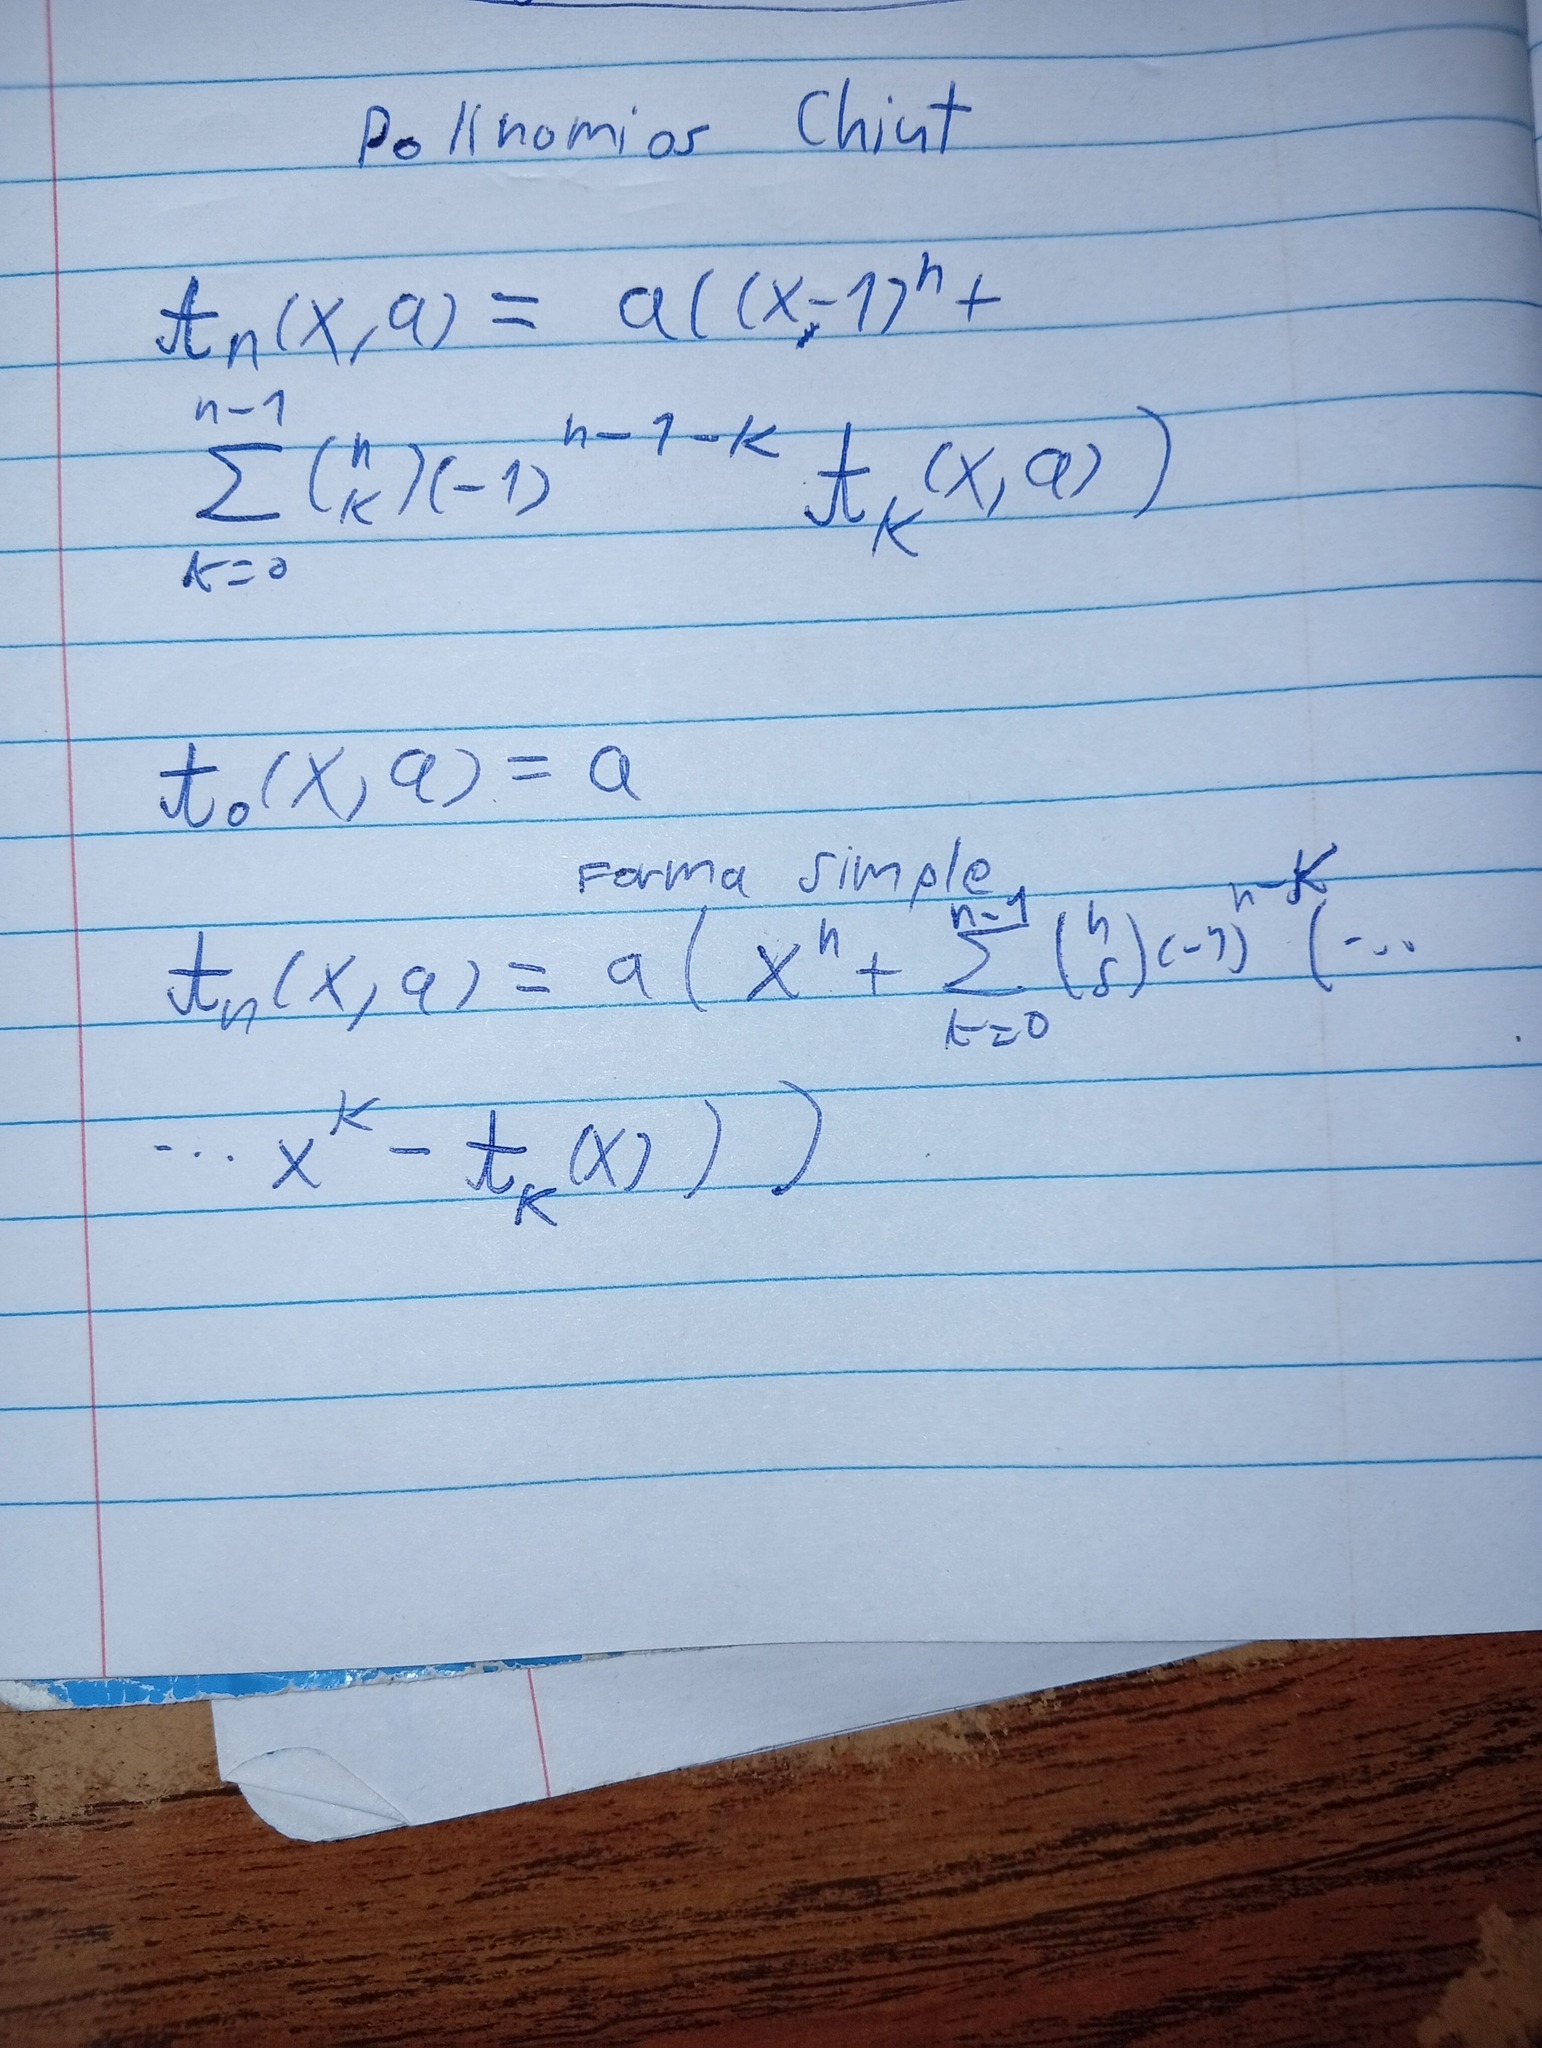 Polinomios Chiut
tₙ(x,a) = a((x-1)ⁿ +
n-1
Σ (n k)(-1)^(n-1-k) t_k(x,a))
k=0
t₀(x,a) = a
Forma simple
tₙ(x,a) = a(xⁿ + Σ_(k=0)^(n-1) (n s)(-1)^(n-k) (...
... x^k - t_k(x)))